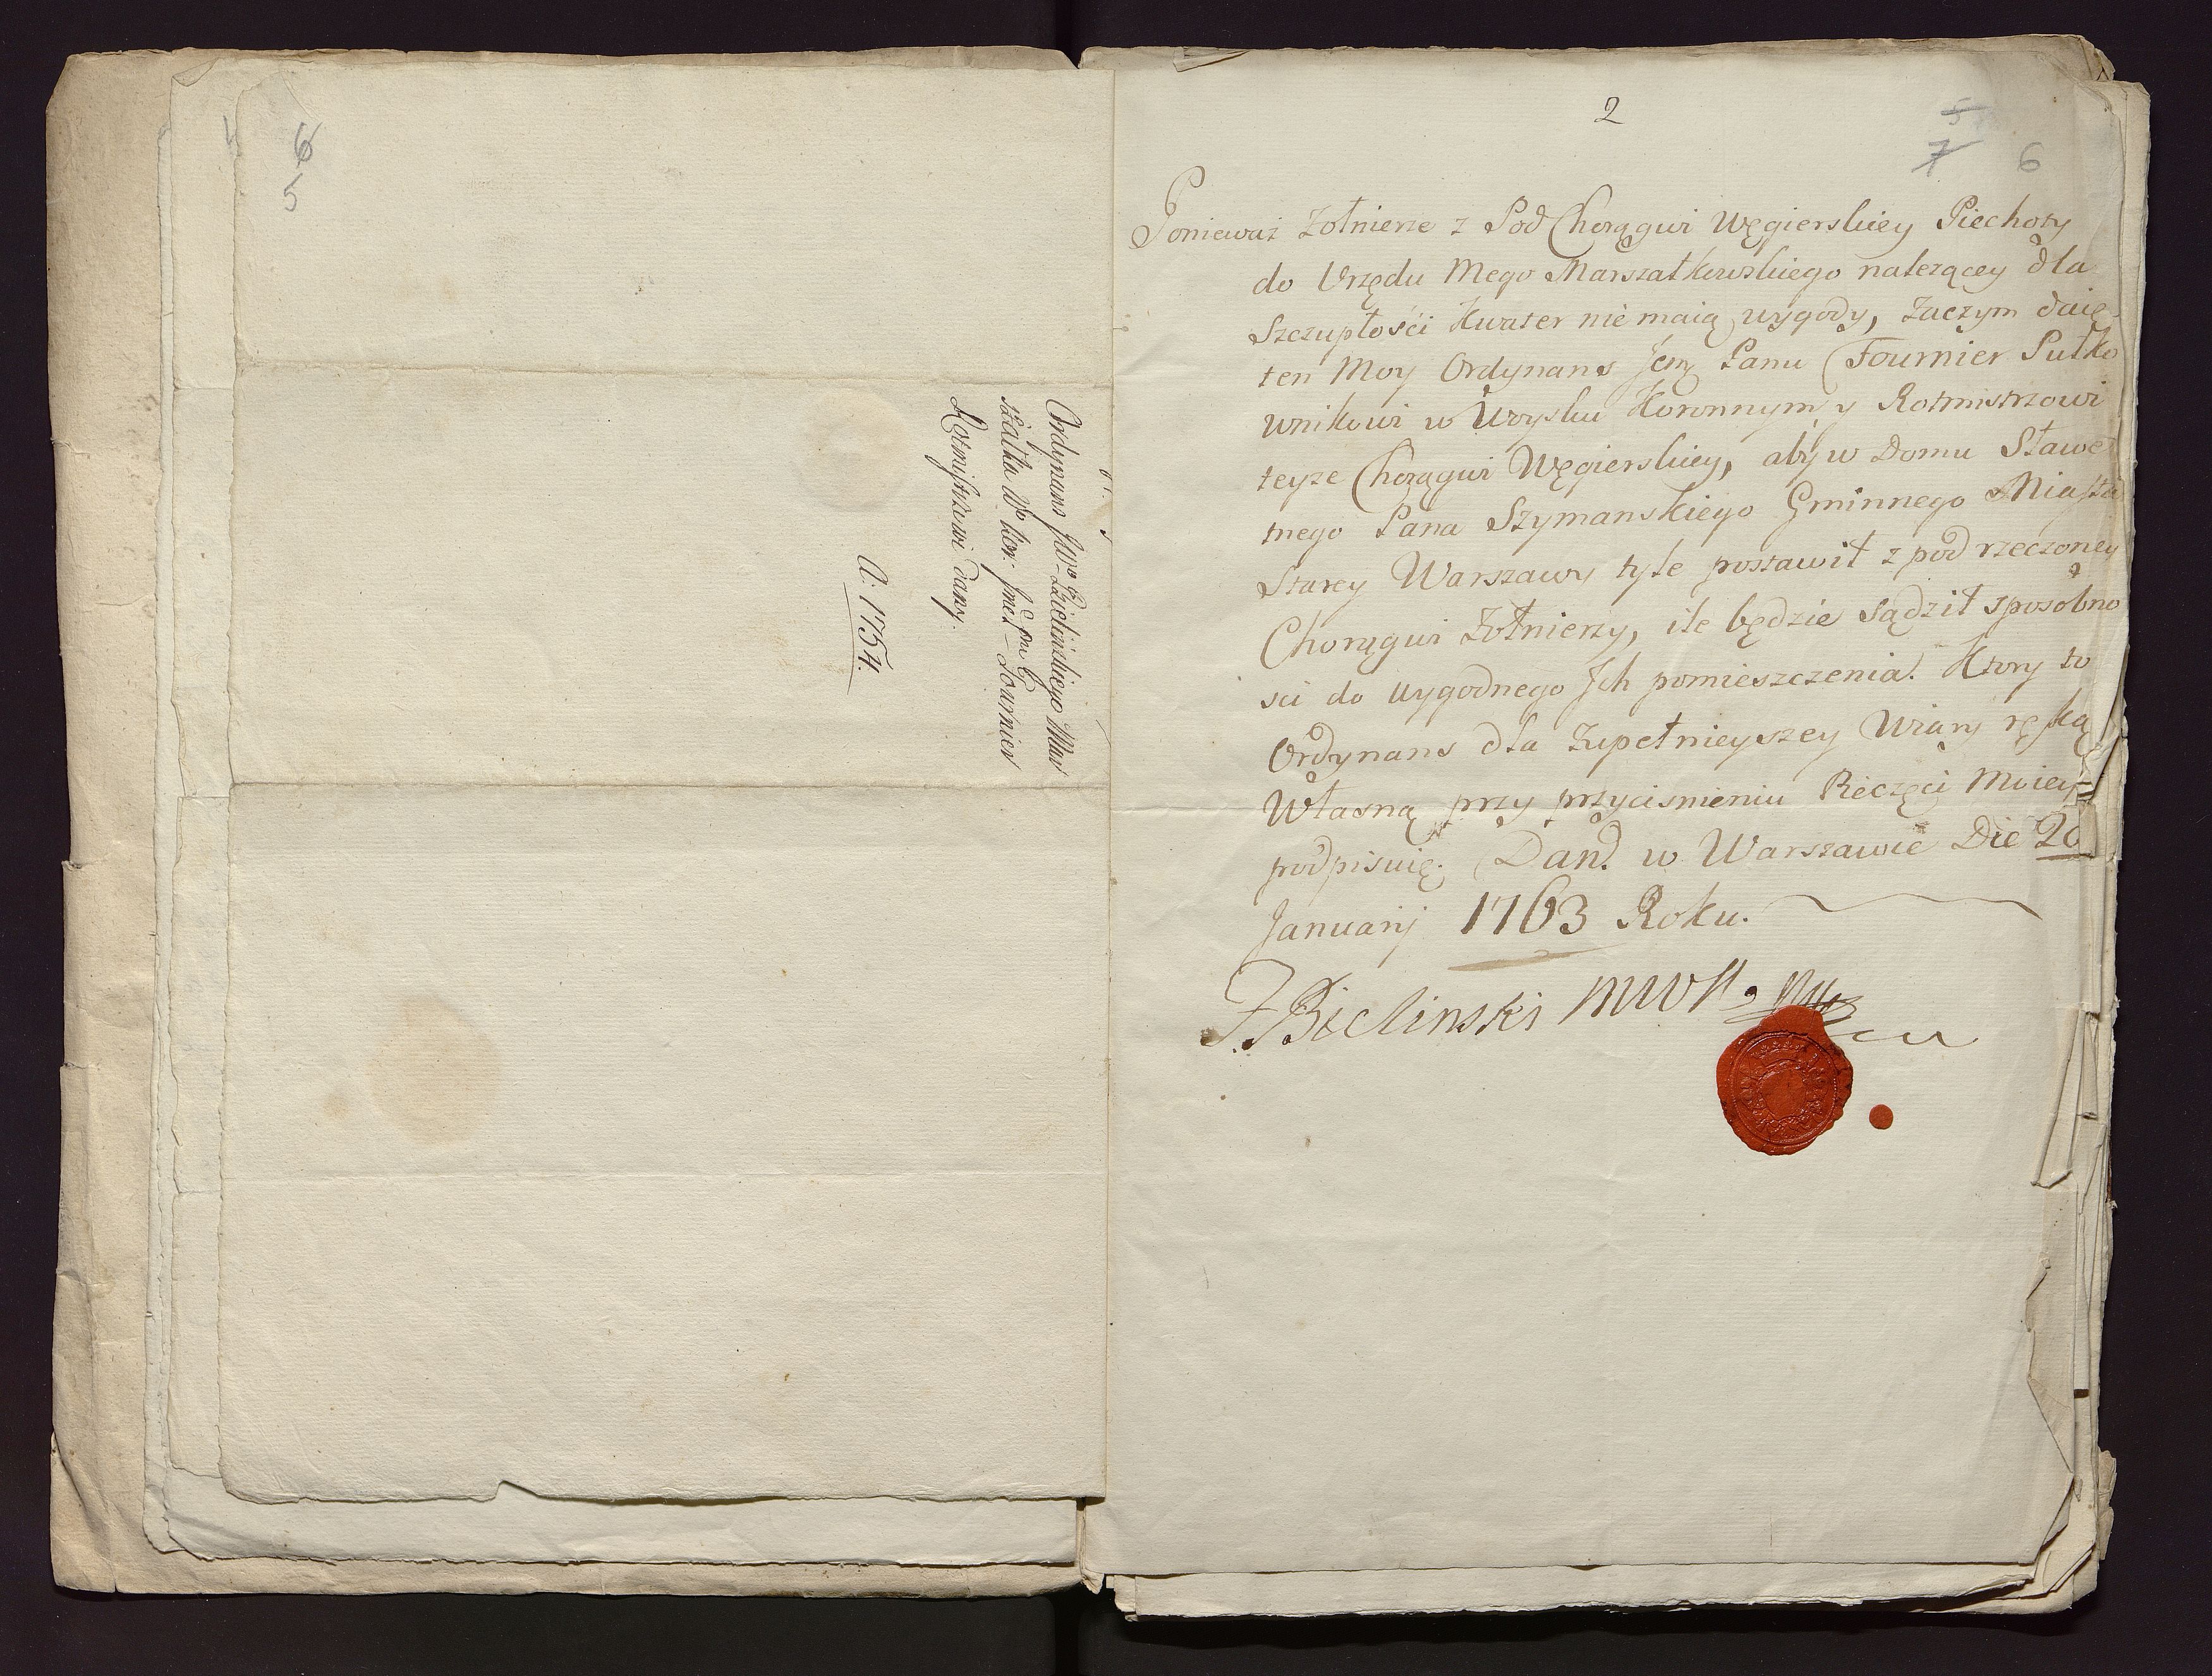 6
5
Ordynans JWo Bielińskiego Mar
szałka Wo kor: Jmć Pu Fournier
Rotmistrzowi dany.
A: 1754.
2
5
7 6
Ponieważ Zołnierze z Pod Chorągwi Węgierskiey Piechoty
do Vrzędu Mego Marszałkowskiego należącey dla
Szczupłości Kwater nie maią wygody, zaczym daię
ten Moy Ordynans Jem Panu Fournier Pułko
wnikowi w Woysku Koronnym y Rotmistrzowi
teyze Chorągwi Węgierskiey, aby w Domu Sławe
tnego Pana Szymanskiego Gminnego Miasta
Starey Warszawy tyle postawił z pod rzeczoney
Chorągwi Zołnierzy, ile będzie sądził sposobno
sci do wygodnego Jch pomieszczenia. Ktory to
Ordynans dla Zupełnieyszey Wiary ręką
Własną przy przycisnieniu Pieczęci Moiey
podpisuię. Dan. w Warszawie Die 20
Januarij 1763 Roku.
F. Bielinski MWK.